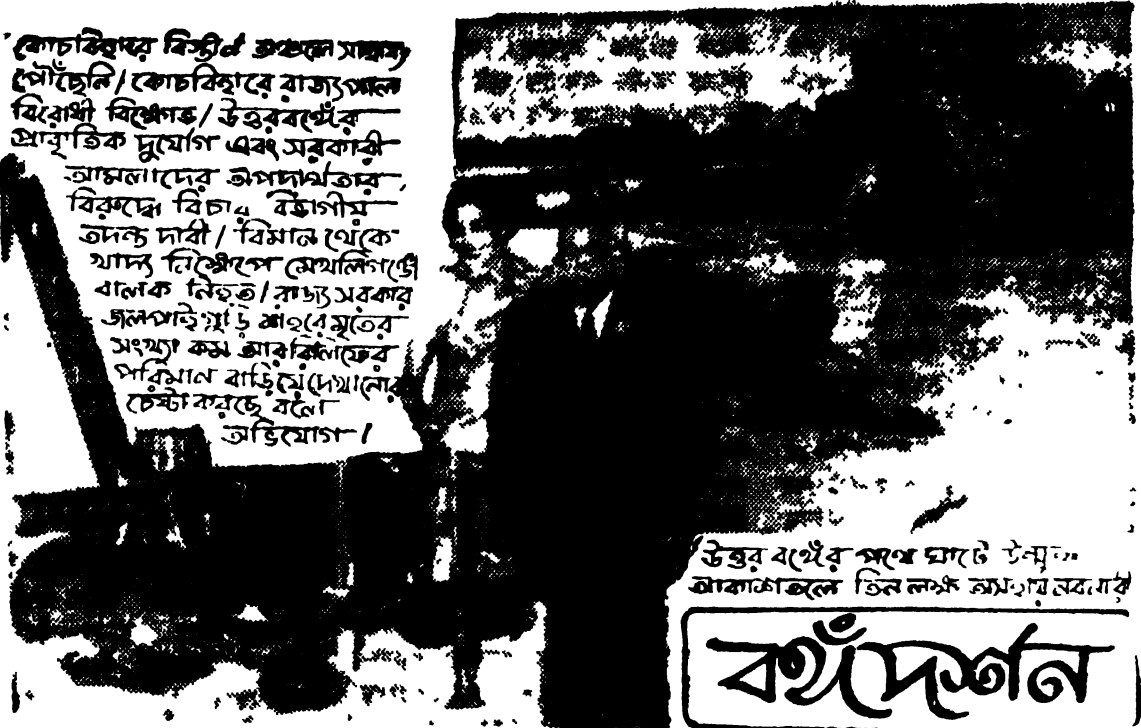 কোচবিহারে বিস্তীর্ণ অঞ্চলে সাহায্য
পৌঁছেনি / কোচবিহারে রাজ্যপাল
বিরোধী বিক্ষোভ / উত্তরবঙ্গের
প্রাকৃতিক দুর্যোগ এবং সরকারী
আমলাদের অপদার্থতার
বিরুদ্ধে বিচার বিভাগীয়
তদন্ত দাবী / বিমান থেকে
খাদ্য নিক্ষেপে মেখলিগঞ্জে
বালক নিহত / রাজ্য সরকার
জলপাইগুড়ি শহরে মৃতের
সংখ্যা কম আর রিলিফের
পরিমান বাড়িয়ে দেখানোর
চেষ্টা করছে বলে
অভিযোগ /
উত্তর বঙ্গের পথে ঘাটে উন্মুক্ত
আকাশতলে তিন লক্ষ অসহায় নরনারী
বঙ্গদর্শন